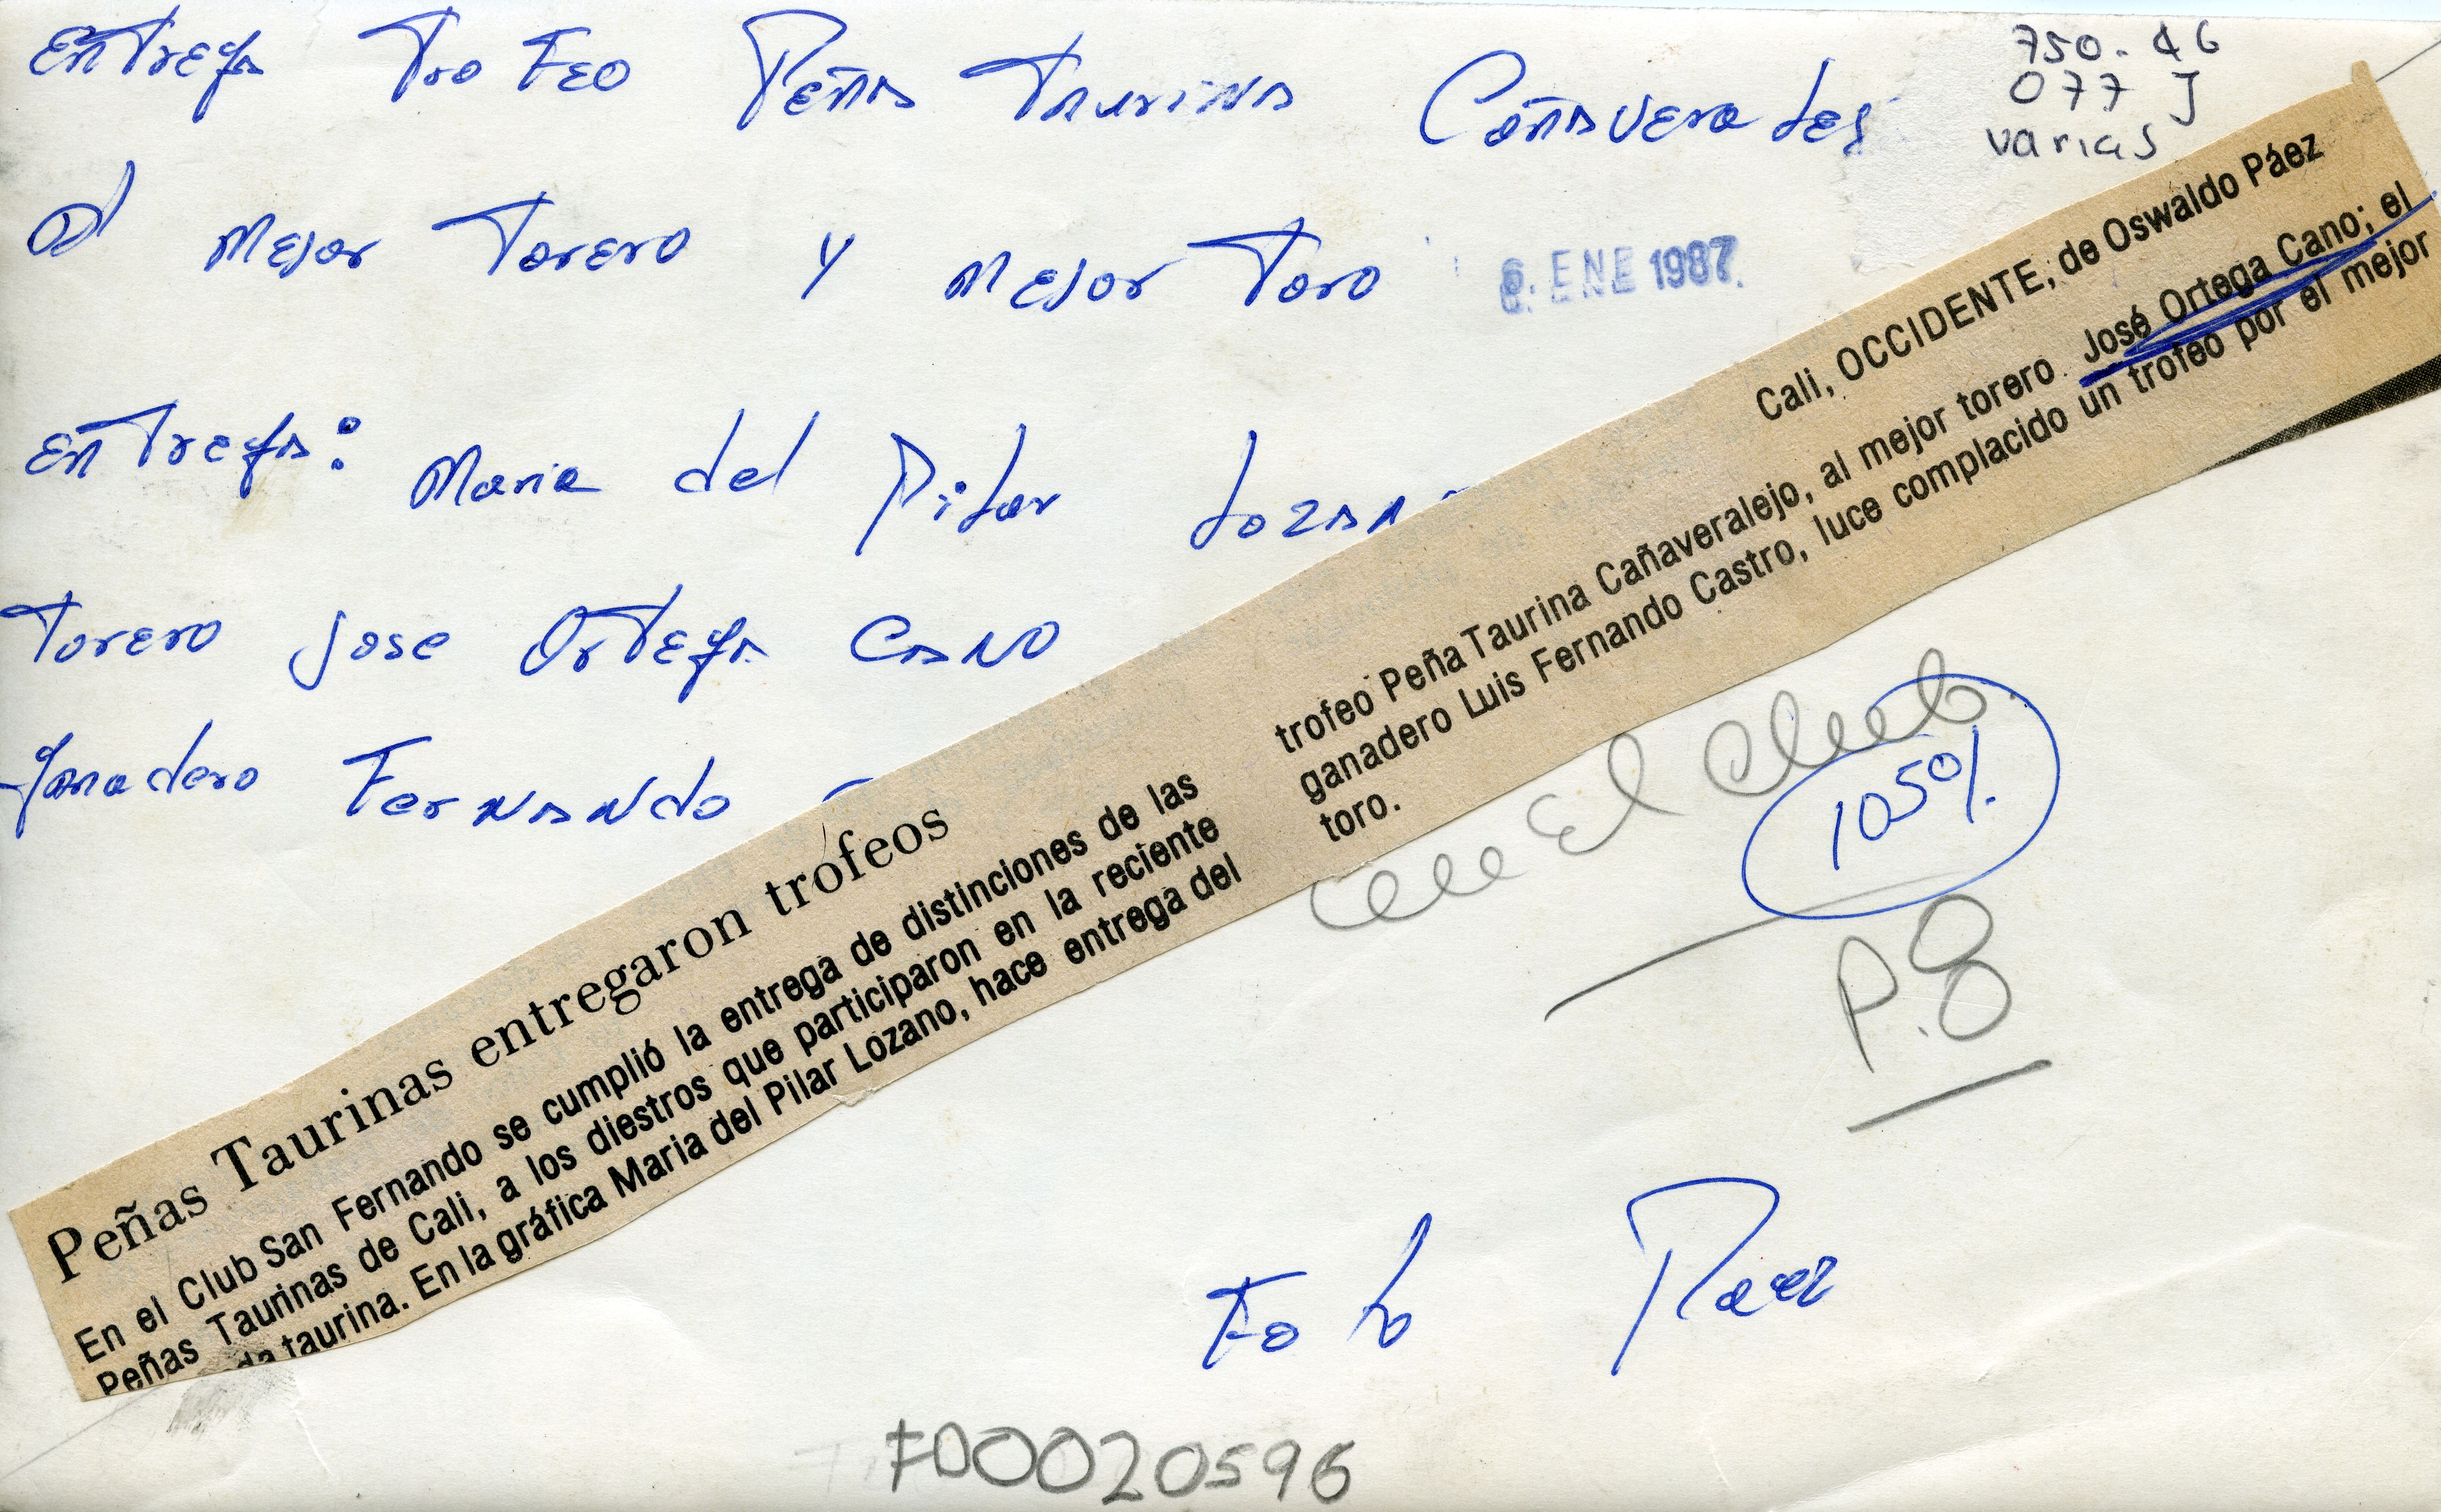 Entrega Trofeo Peña Taurina Cañaverales
750-46
077 J
varias
al mejor Torero y mejor Toro
6. ENE 1987.
Entrega: Maria del Pilar Lozan
Torero Jose Ortega Cano
ganadero Fernando
Peñas Taurinas entregaron trofeos
En el Club San Fernando se cumplió la entrega de distinciones de las
Peñas Taurinas de Cali, a los diestros que participaron en la reciente
da taurina. En la gráfica Maria del Pilar Lozano, hace entrega del
Cali, OCCIDENTE, de Oswaldo Páez
trofeo Peña Taurina Cañaveralejo, al mejor torero José Ortega Cano; el
ganadero Luis Fernando Castro, luce complacido un trofeo por el mejor
toro.
El Club
105%
P.8
Foto Paez
F00020596